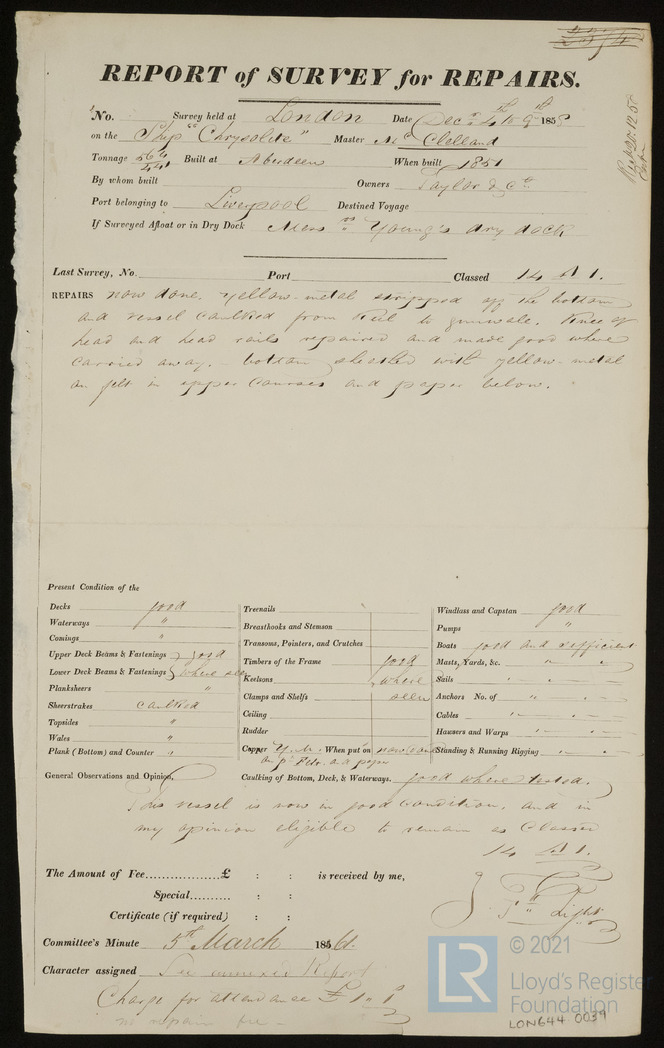 REPORT of SURVEY for REPAIRS.
No. Survey held at London Date Decr 4th to 9th 1858
on the Ship "Chrysolite" Master Mc Clelland
Tonnage 564 / 441 Built at Aberdeen When built 1851
By whom built Owners Taylor & Co.
Port belonging to Liverpool Destined Voyage
If Surveyed Afloat or in Dry Dock Messrs Young's dry dock
Last Survey, No. Port Classed 14 A 1.
REPAIRS now done. Yellow metal stripped off the bottom
and vessel caulked from Keel to gunwale. Knee of
head and head rails repaired and made good where
carried away. - bottom sheathed with yellow-metal
on felt in upper courses and paper below.
Present Condition of the
Decks good
Waterways "
Comings "
Upper Deck Beams & Fastenings } good
Lower Deck Beams & Fastenings } where seen
Planksheers "
Sheerstrakes caulked
Topsides "
Wales "
Plank (Bottom) and Counter "
Treenails
Breasthooks and Stemson
Transoms, Pointers, and Crutches
Timbers of the Frame good
Keelsons where
Clamps and Shelfs seen
Ceiling
Rudder
Copper Y.M. When put on now done
on felt and paper
Windlass and Capstan good
Pumps "
Boats good and sufficient
Masts, Yards, &c. " "
Sails " "
Anchors No. of " "
Cables " "
Hausers and Warps " "
Standing & Running Rigging " "
General Observations and Opinion, Caulking of Bottom, Deck, & Waterways. good where tested.
This vessel is now in good condition, and in
my opinion eligible to remain as Classed
14 A 1.
The Amount of Fee................£ : : is received by me,
Special.......... : :
Certificate (if required) : : Light
Committee's Minute 5th March 1861.
Character assigned See annexed Report
Charge for attendance £1 " 1
no repair fee -
LR © 2021
Lloyd's Register
Foundation
LON644-0039